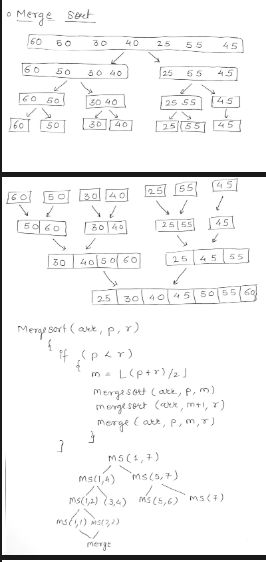 o Merge Sort
60 50 30 40 25 55 45
60 50 30 40 25 55 45
60 50 30 40 25 55 45
60 50 30 40 25 55 45
60 50 30 40 25 55 45
50 60 30 40 25 55 45
30 40 50 60 25 45 55
25 30 40 45 50 55 60
Mergesort (arr, p, r)
{
if (p < r)
{
m = ⌊(p+r)/2⌋
mergesort (arr, p, m)
mergesort (arr, m+1, r)
merge (arr, p, m, r)
}
}
MS(1,7)
MS(1,4) MS(5,7)
MS(1,2) (3,4) MS(5,6) MS(7)
MS(1,1) MS(2,2)
merge